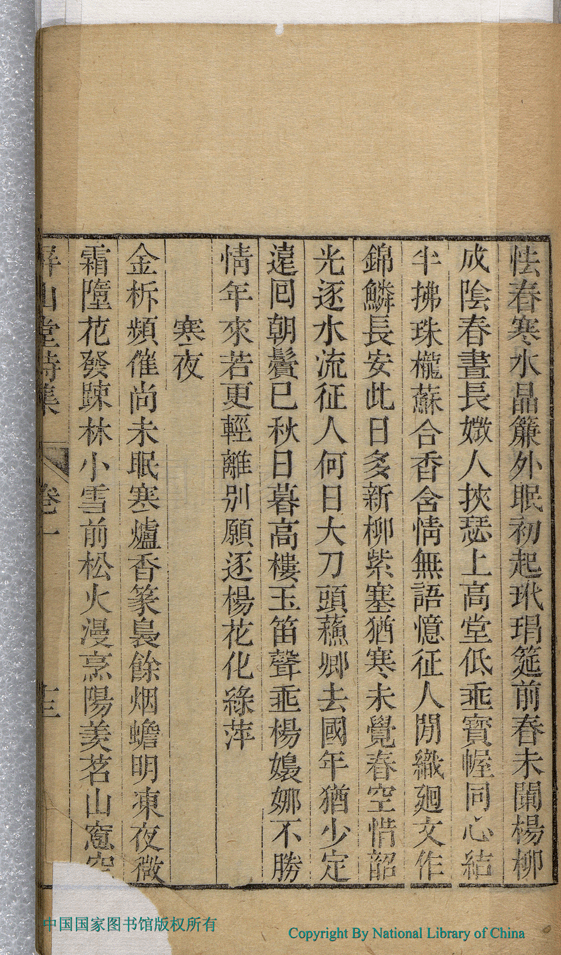 怯春寒水晶簾外眠初起玳瑁筵前春未闌楊柳
成陰春晝長媺人挾瑟上高堂低垂寶幄同心結
半拂珠櫳蘇合香含情無語憶征人閒織廻文作
錦鱗長安此日多新柳紫塞猶寒未覺春空惜韶
光逐水流征人何日大刀頭蘇卿去國年猶少定
遠囘朝鬢已秋日暮高樓玉笛聲垂楊嫋娜不勝
情年來若更輕離別願逐楊花化綠萍
寒夜
金柝頻催尚未眠寒爐香篆裊餘烟蟾明凍夜微
霜墮花發踈林小雪前松火漫烹陽羨茗山窻空
屏山堂詩集 卷一 十三
中国国家图书馆版权所有
Copyright By National Library of China